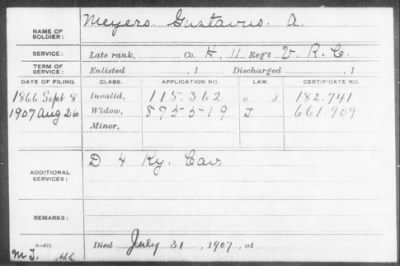 NAME OF SOLDIER: Meyers Gustavus. A.
SERVICE: Late rank, Co. K 11 Reg't V. R. C.
TERM OF SERVICE: Enlisted , 1 Discharged , 1
DATE OF FILING. CLASS. APPLICATION NO. LAW. CERTIFICATE NO.
1866 Sept 8 Invalid, 115.362 182.741
1907 Aug 26 Widow, 875519 661.909
Minor,
ADDITIONAL SERVICES: D 4 Ky. Cav.
REMARKS:
Died July 31, 1907, at